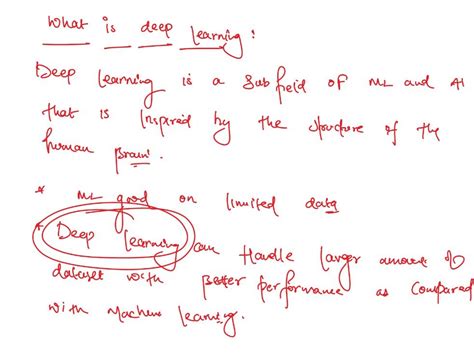 What is deep learning:
Deep Learning is a Subfield of ML and AI
that is Inspired by the structure of the
human brain.
* ML good on limited data
* Deep learning can Handle larger amount of
dataset with better performance as compared
with Machine learning.